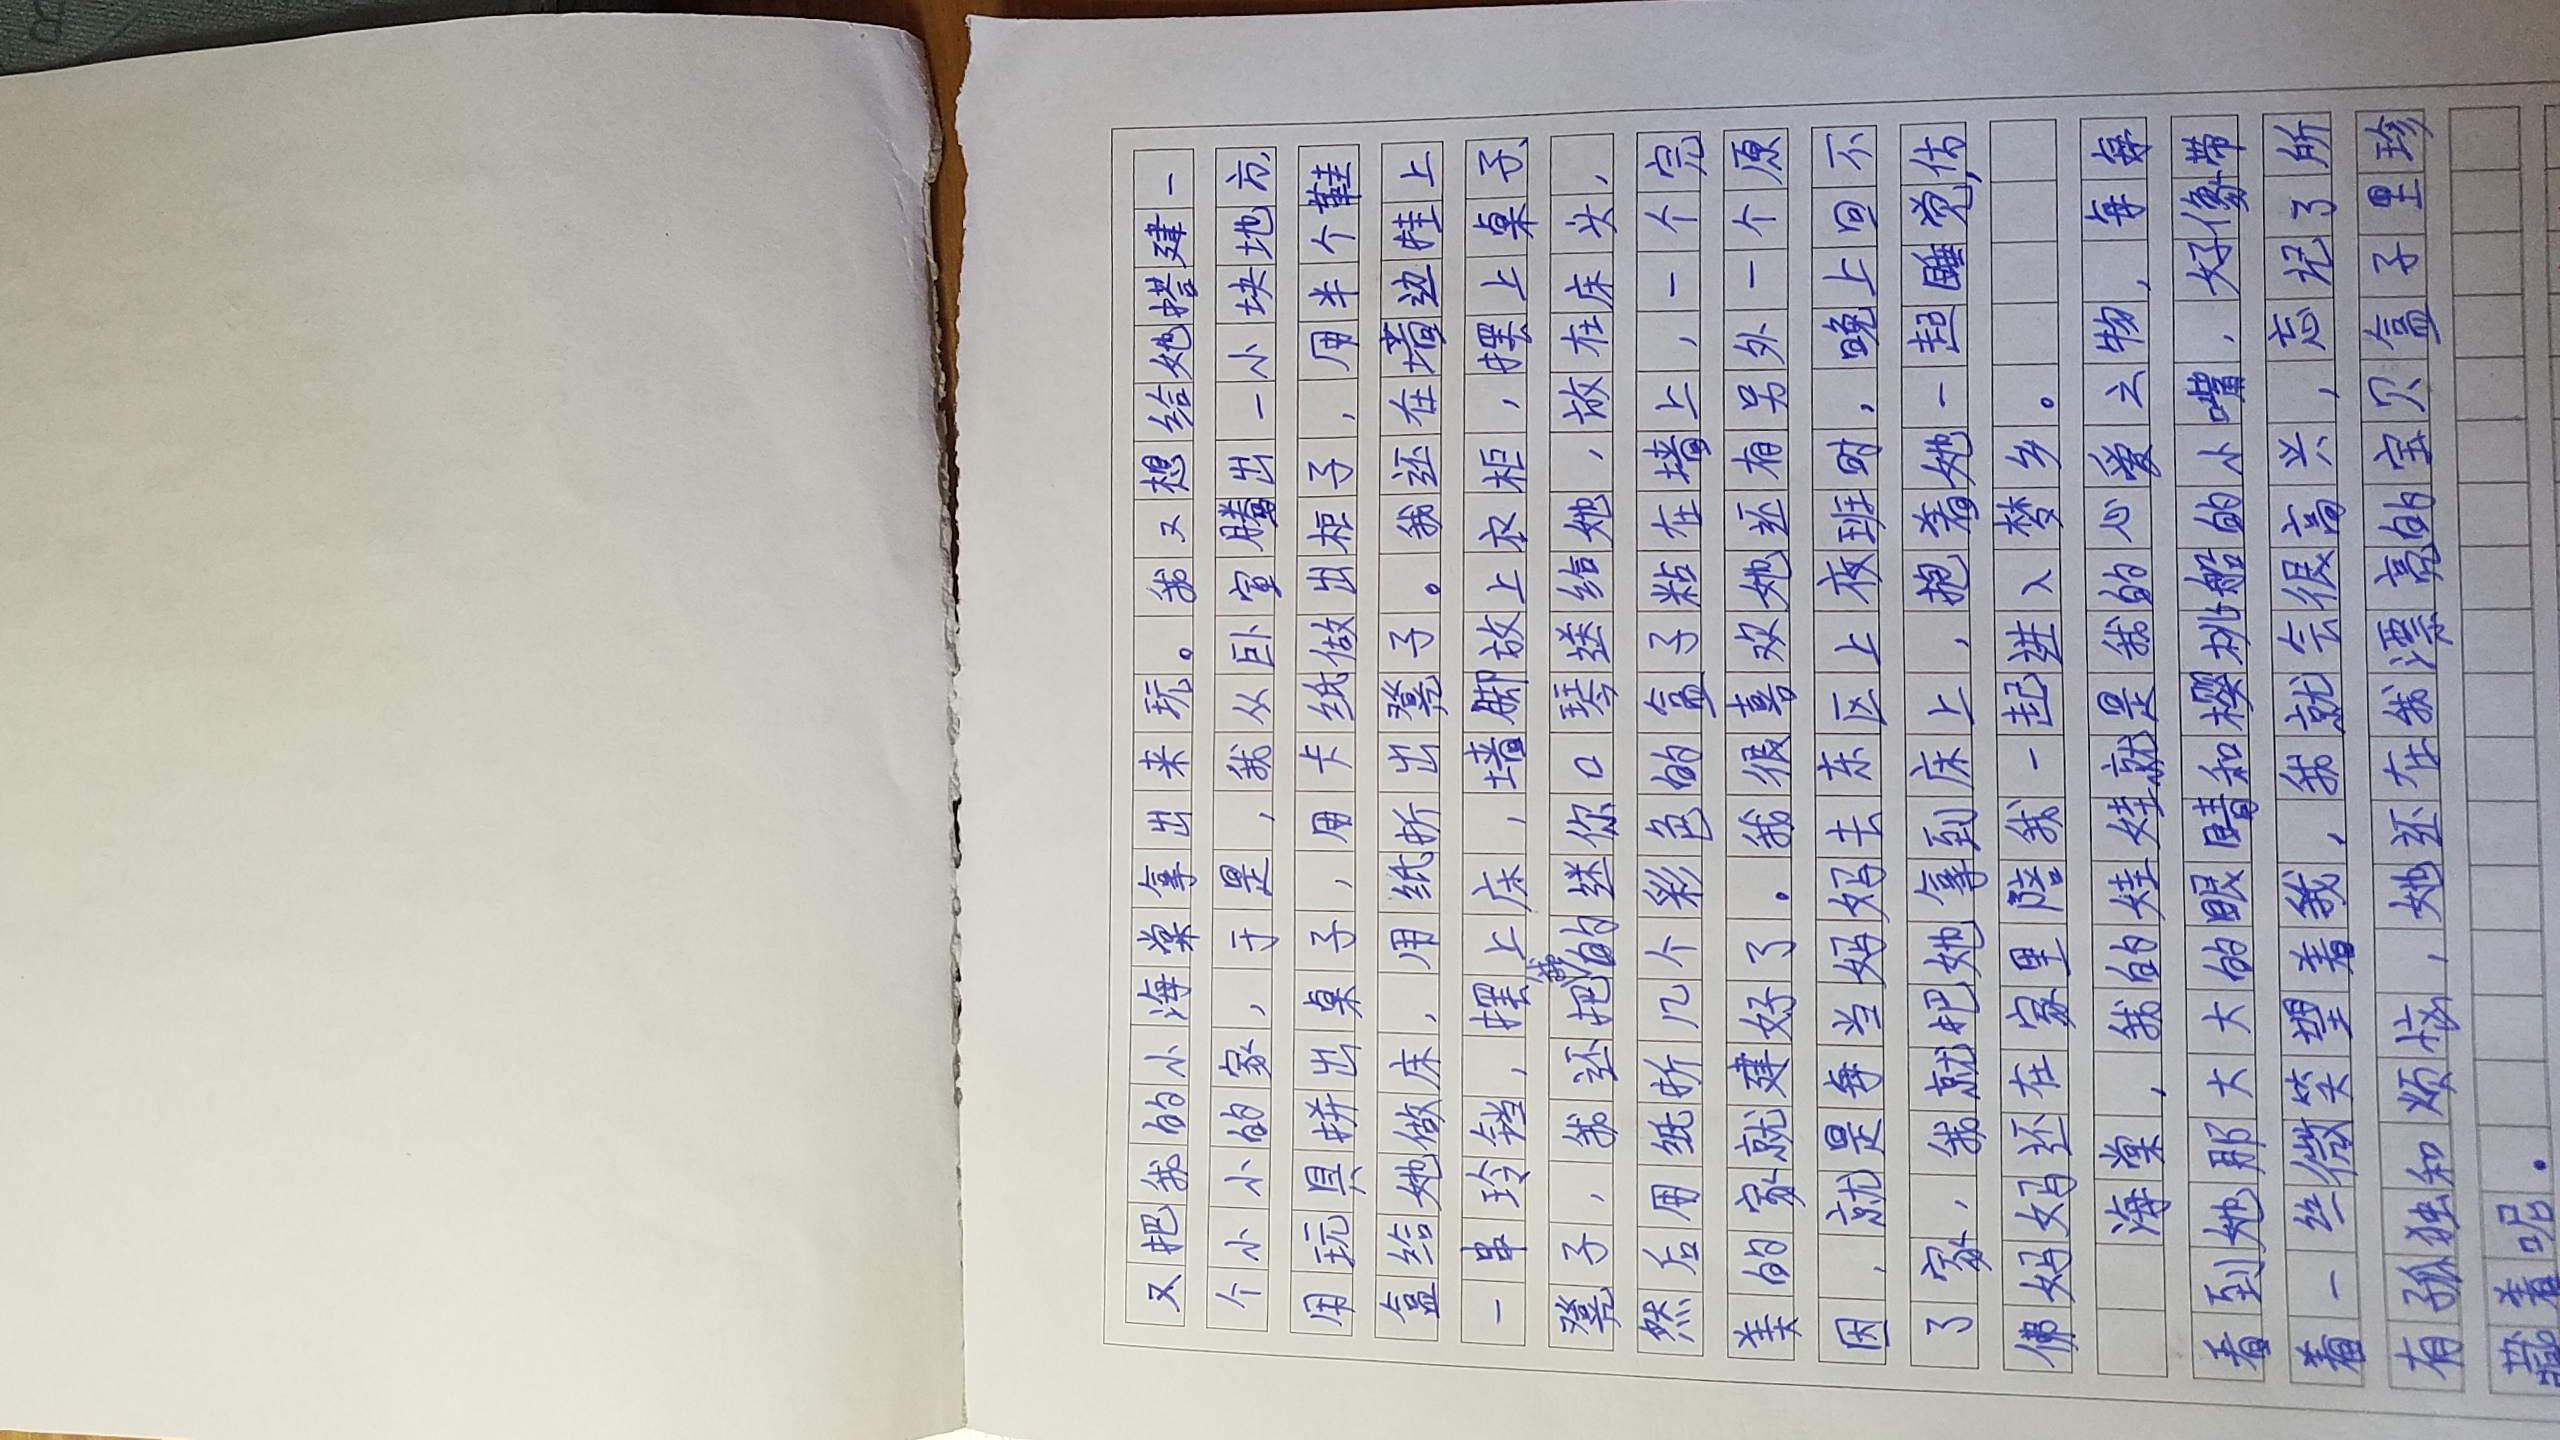 又把我的小海棠拿出来玩。我又想给她搭建一
个小小的家，于是，我从卧室腾出一小块地方，
用玩具拼出桌子，用卡纸做出柜子，用半个鞋
盒给她做床，用纸折出凳子。我还在墙边挂上
一串玲铛，摆上床，墙脚放上衣柜，摆上桌子、
凳子，我还把的迷你口琴送给她，放在床头，
然后用纸折几个彩色的盒子粘在墙上，一个完
美的家就建好了。我很喜欢她还有另外一个原
因，就是每当妈妈去东区上夜班时，晚上回不
了家，我就把她拿到床上，抱着她一起睡觉，仿
佛妈妈还在家里陪我一起进入梦乡。
海棠，我的娃娃就是我的心爱之物，每每
看到她那大大的眼睛和樱桃船的小嘴，好像带
着一丝微笑望着我，我就会很高兴，忘记了所
有孤独和烦恼，她还在我漂亮的宝贝盒子里珍
藏着呢。